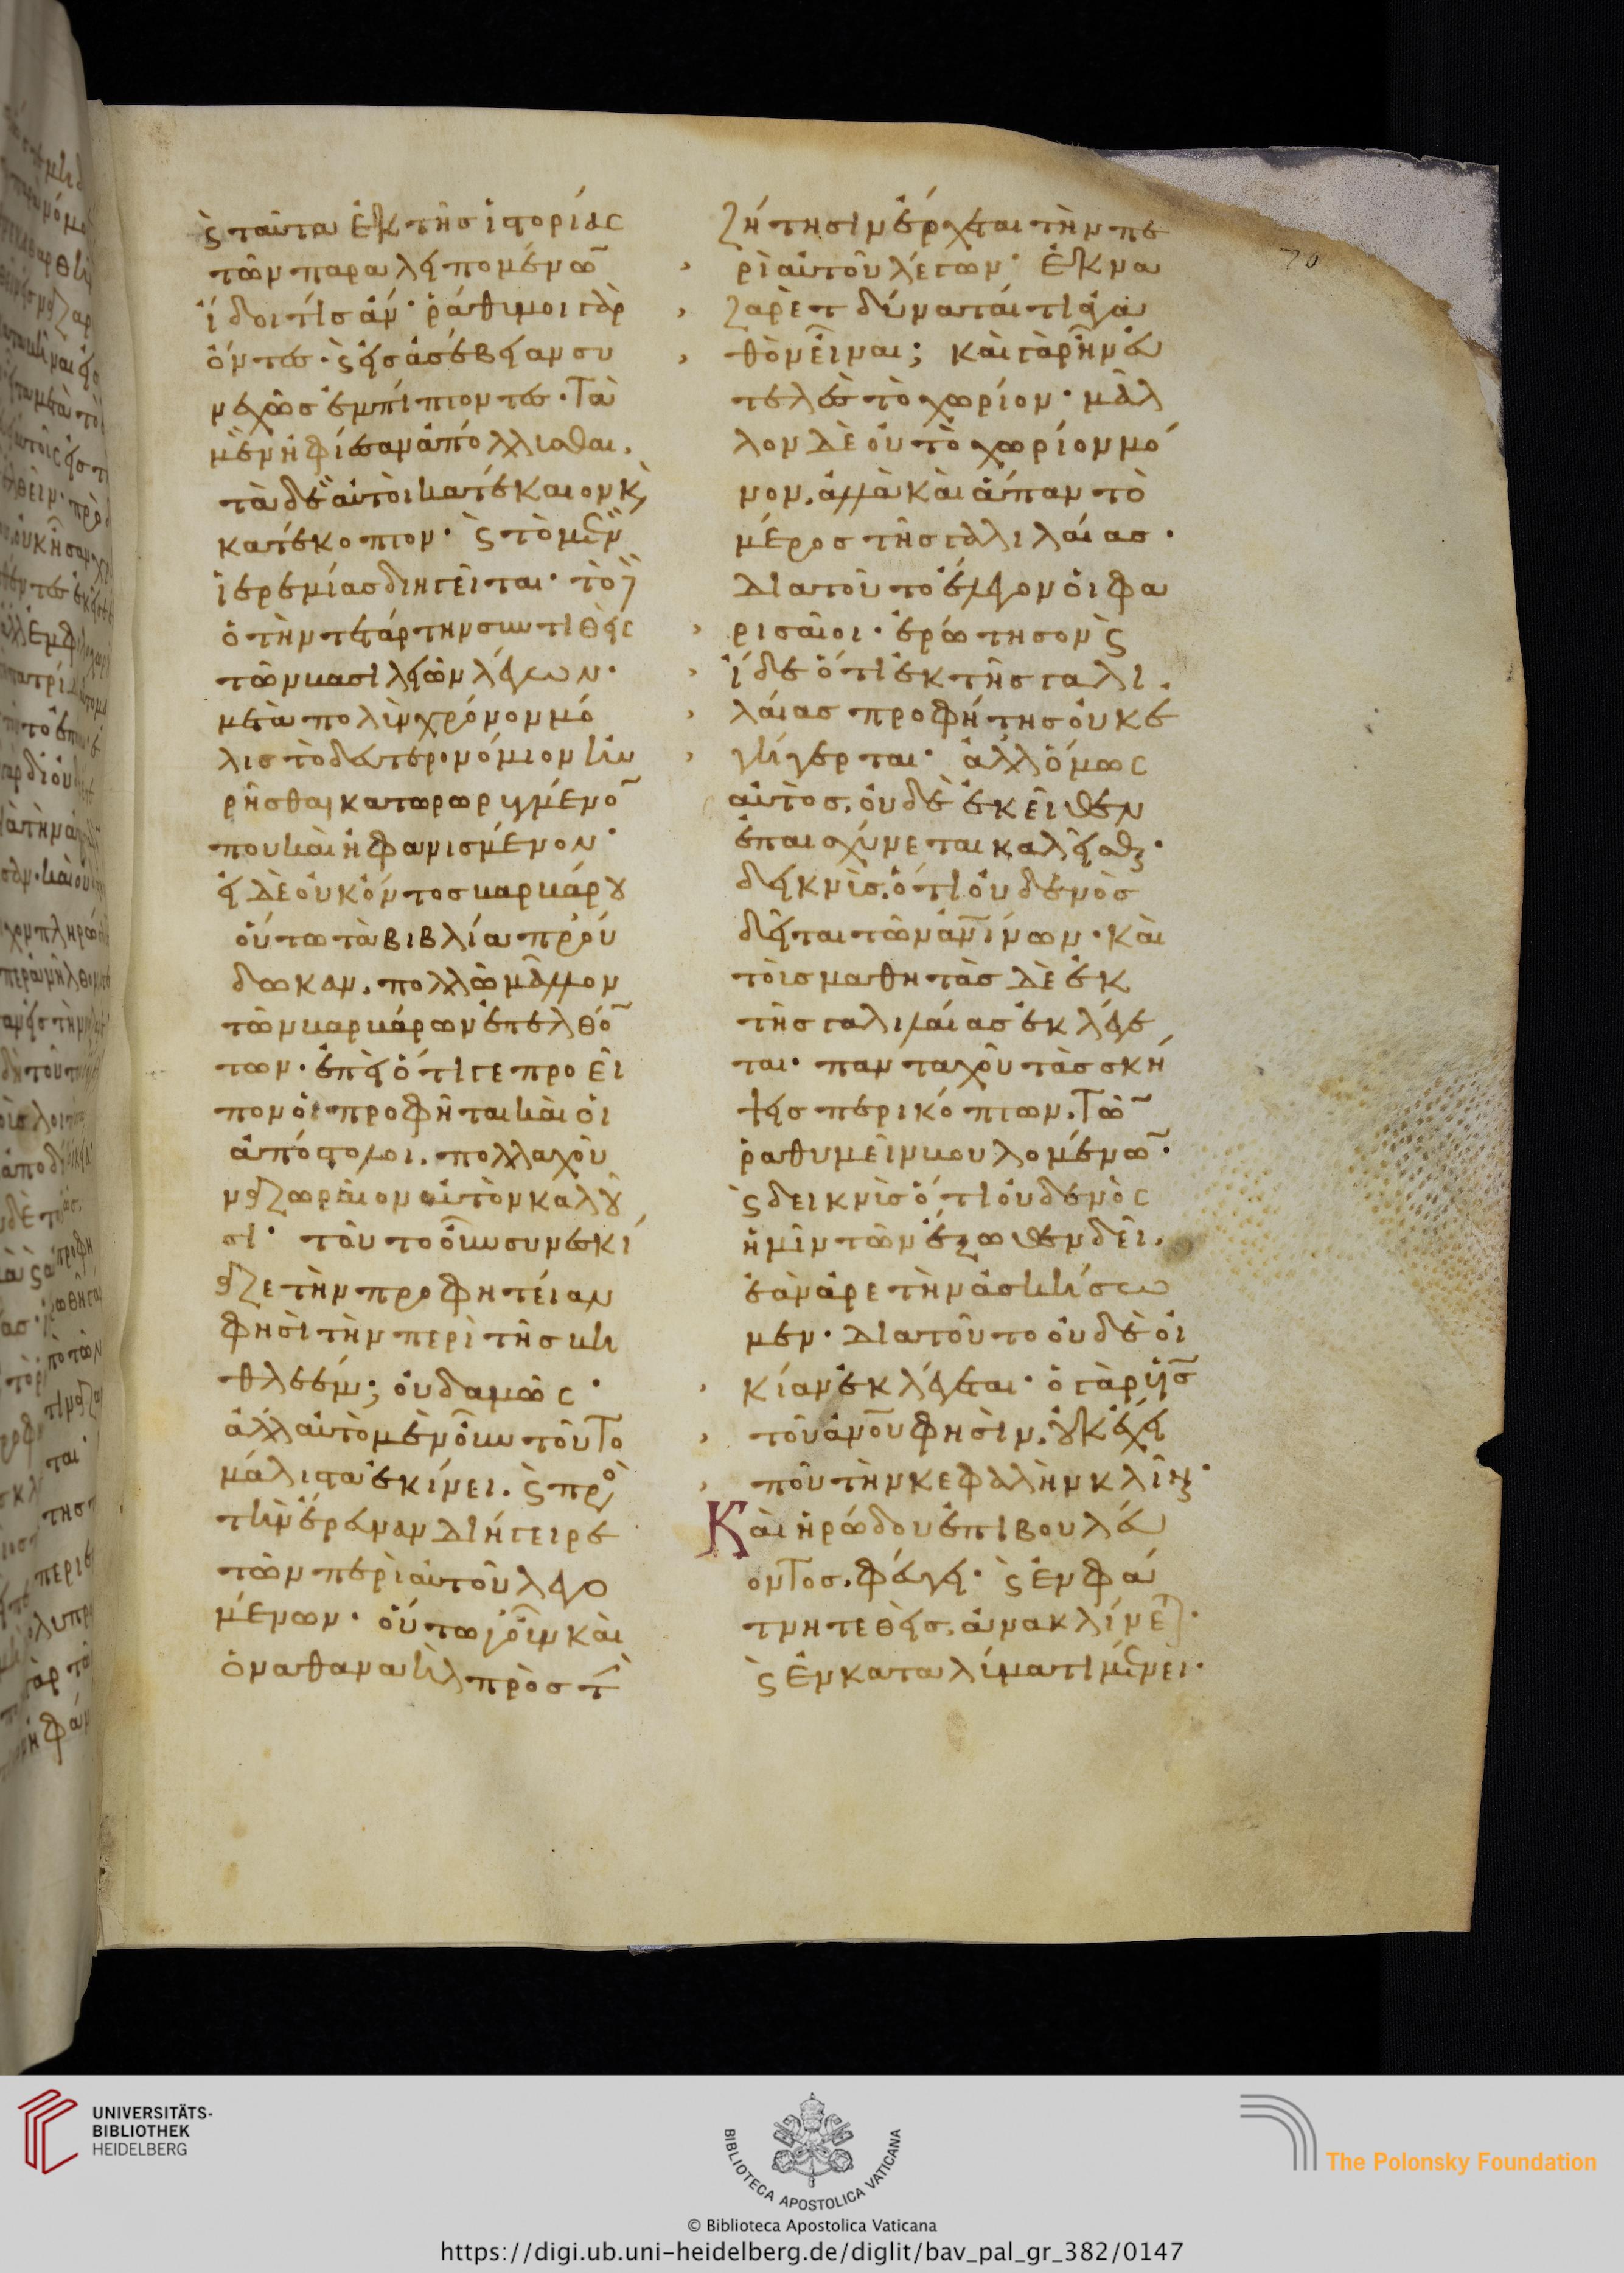 ϛ ταῦτα ἐκ τῆς ἱστορίας
τῶν παραλειπομένω̅
ἴδοι τίς ἄν· ῥάθυμοι γὰρ
ὄντες· ϛ εἰς ἀσέβειαν συ
νεχῶς ἐμπίπτοντες· Τὰ
μὲν ἠφίεσαν ἀπόλλυσθαι,
τὰ δὲ αὐτοὶ κατέκαιον κ̀
κατέκοπτον· ϛ τὸ μὲν
ἱερεμίας διηγεῖται· τὸ
ὁ τὴν τετάρτην συντιθεὶς
τῶν βασιλειῶν λέγων·
μετὰ πολὺν χρόνον μό
λις τὸ δευτερονόμιον ηὑ
ρῆσθαι κατωρωρυγμένο̅
που καὶ ἠφανισμένον·
εἰ δὲ οὐκ ὄντος βαρβάρου
οὕτω τὰ βιβλία πρού
δωκαν, πολλῶ μᾶλλον
τῶν βαρβάρων ἐπελθό̅
των· ἐπεὶ ὅτι γε προεῖ
πον οἱ προφῆται καὶ οἱ
ἀπόστολοι, πολλαχοῦ
ναζωραῖον αὐτὸν καλοῦ
σι· τοῦτο οὖν συνεσκί
αζε τὴν προφητείαν
φησὶ τὴν περὶ τῆς βη
θλεέμ; οὐδαμῶς·
ἀλλ αὐτὸ μὲν οὖν τοῦτο
μάλιστα ἐκίνει, ϛ πρὸ
τὴν ἔρευναν διήγειρε
τῶν περὶ αὐτοῦ λεγο
μένων· οὕτω γοῦν καὶ
ὁ ναθαναὴλ πρὸς τ̀
ζήτησιν ἔρχεται τὴν πε
ρὶ αὐτοῦ λέγων· Ἐκ να
ζαρὲτ δύναταί τι ἀγα
θὸν εἶναι; καὶ γὰρ ἦν εὐ
τελὲς τὸ χωρίον· μᾶλ
λον δὲ οὐ τὸ χωρίον μό
νον, ἀλλὰ καὶ ἅπαν τὸ
μέρος τῆς γαλιλαίας·
Διατοῦτο ἔλεγον οἱ φα
ρισαῖοι· ἐρώτησον ϛ
ἴδε ὅτι ἐκ τῆς γαλι
λαίας προφήτης οὐκ ἐ
γήγερται· ἀλλ ὅμως
αὐτὸς, οὐδὲ ἐκεῖθεν
ἐπαισχύνεται καλεῖσθαι·
δεικνὺς, ὅτι οὐδενὸς
δεῖται τῶν ἀν̅ίνων· καὶ
τοὺς μαθητὰς δὲ ἐκ
τῆς γαλιλαίας ἐκλέγε
ται· πανταχοῦ τὰς σκή
ψεις περικόπτων, Τῶ̅
ῥαθυμεῖν βουλομένω̅·
ϛ δεικνὺς ὅτι οὐδενὸς
ἡμῖν τῶν ἔξωθεν δεῖ,
ἐὰν ἀρετὴν ἀσκήσω
μεν· Διατοῦτο οὐδὲ οἰ
κίαν ἐκλέγεται· ὁ γὰρ ὑι̅ς
τοῦ ἀν̅ου φησὶν, οὐκ ἔχει
ποῦ τὴν κεφαλὴν κλῖναι·
Καὶ ἡρώδου ἐπιβουλεύ
οντος, φεύγει· ϛ ἐν φά
τνη τεθεὶς, ἀνακλίνε·
ϛ ἐν καταλύματι μένει·
70
UNIVERSITÄTS-
BIBLIOTHEK
HEIDELBERG
BIBLIOTECA APOSTOLICA VATICANA
© Biblioteca Apostolica Vaticana
The Polonsky Foundation
https://digi.ub.uni-heidelberg.de/diglit/bav_pal_gr_382/0147